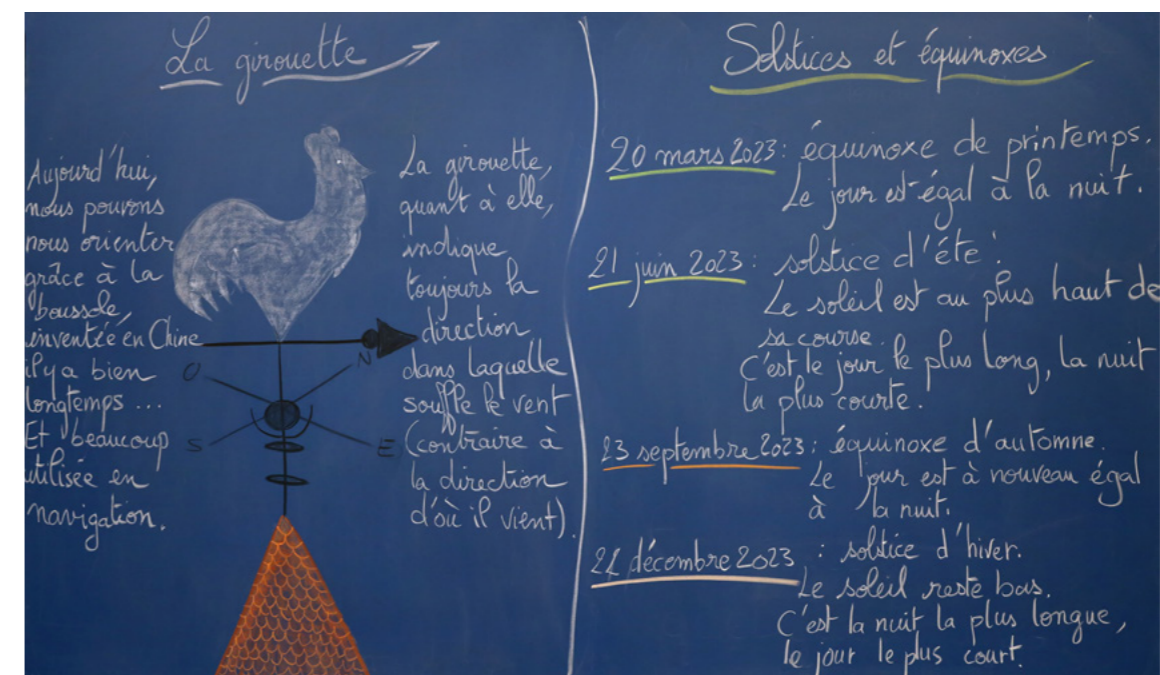 La girouette
Aujourd'hui,
nous pouvons
nous orienter
grâce à la
boussole,
inventée en Chine
il y a bien
longtemps ...
Et beaucoup
utilisée en
navigation.
N
O
S
E
La girouette,
quant à elle,
indique
toujours la
direction
dans laquelle
souffle le vent
(contraire à
la direction
d'où il vient).
Solstices et équinoxes
20 mars 2023 : équinoxe de printemps.
Le jour est égal à la nuit.
21 juin 2023 : solstice d'été.
Le soleil est au plus haut de
sa course.
C'est le jour le plus long, la nuit
la plus courte.
23 septembre 2023 : équinoxe d'automne.
Le jour est à nouveau égal
à la nuit.
21 décembre 2023 : solstice d'hiver.
Le soleil reste bas.
C'est la nuit la plus longue,
le jour le plus court.